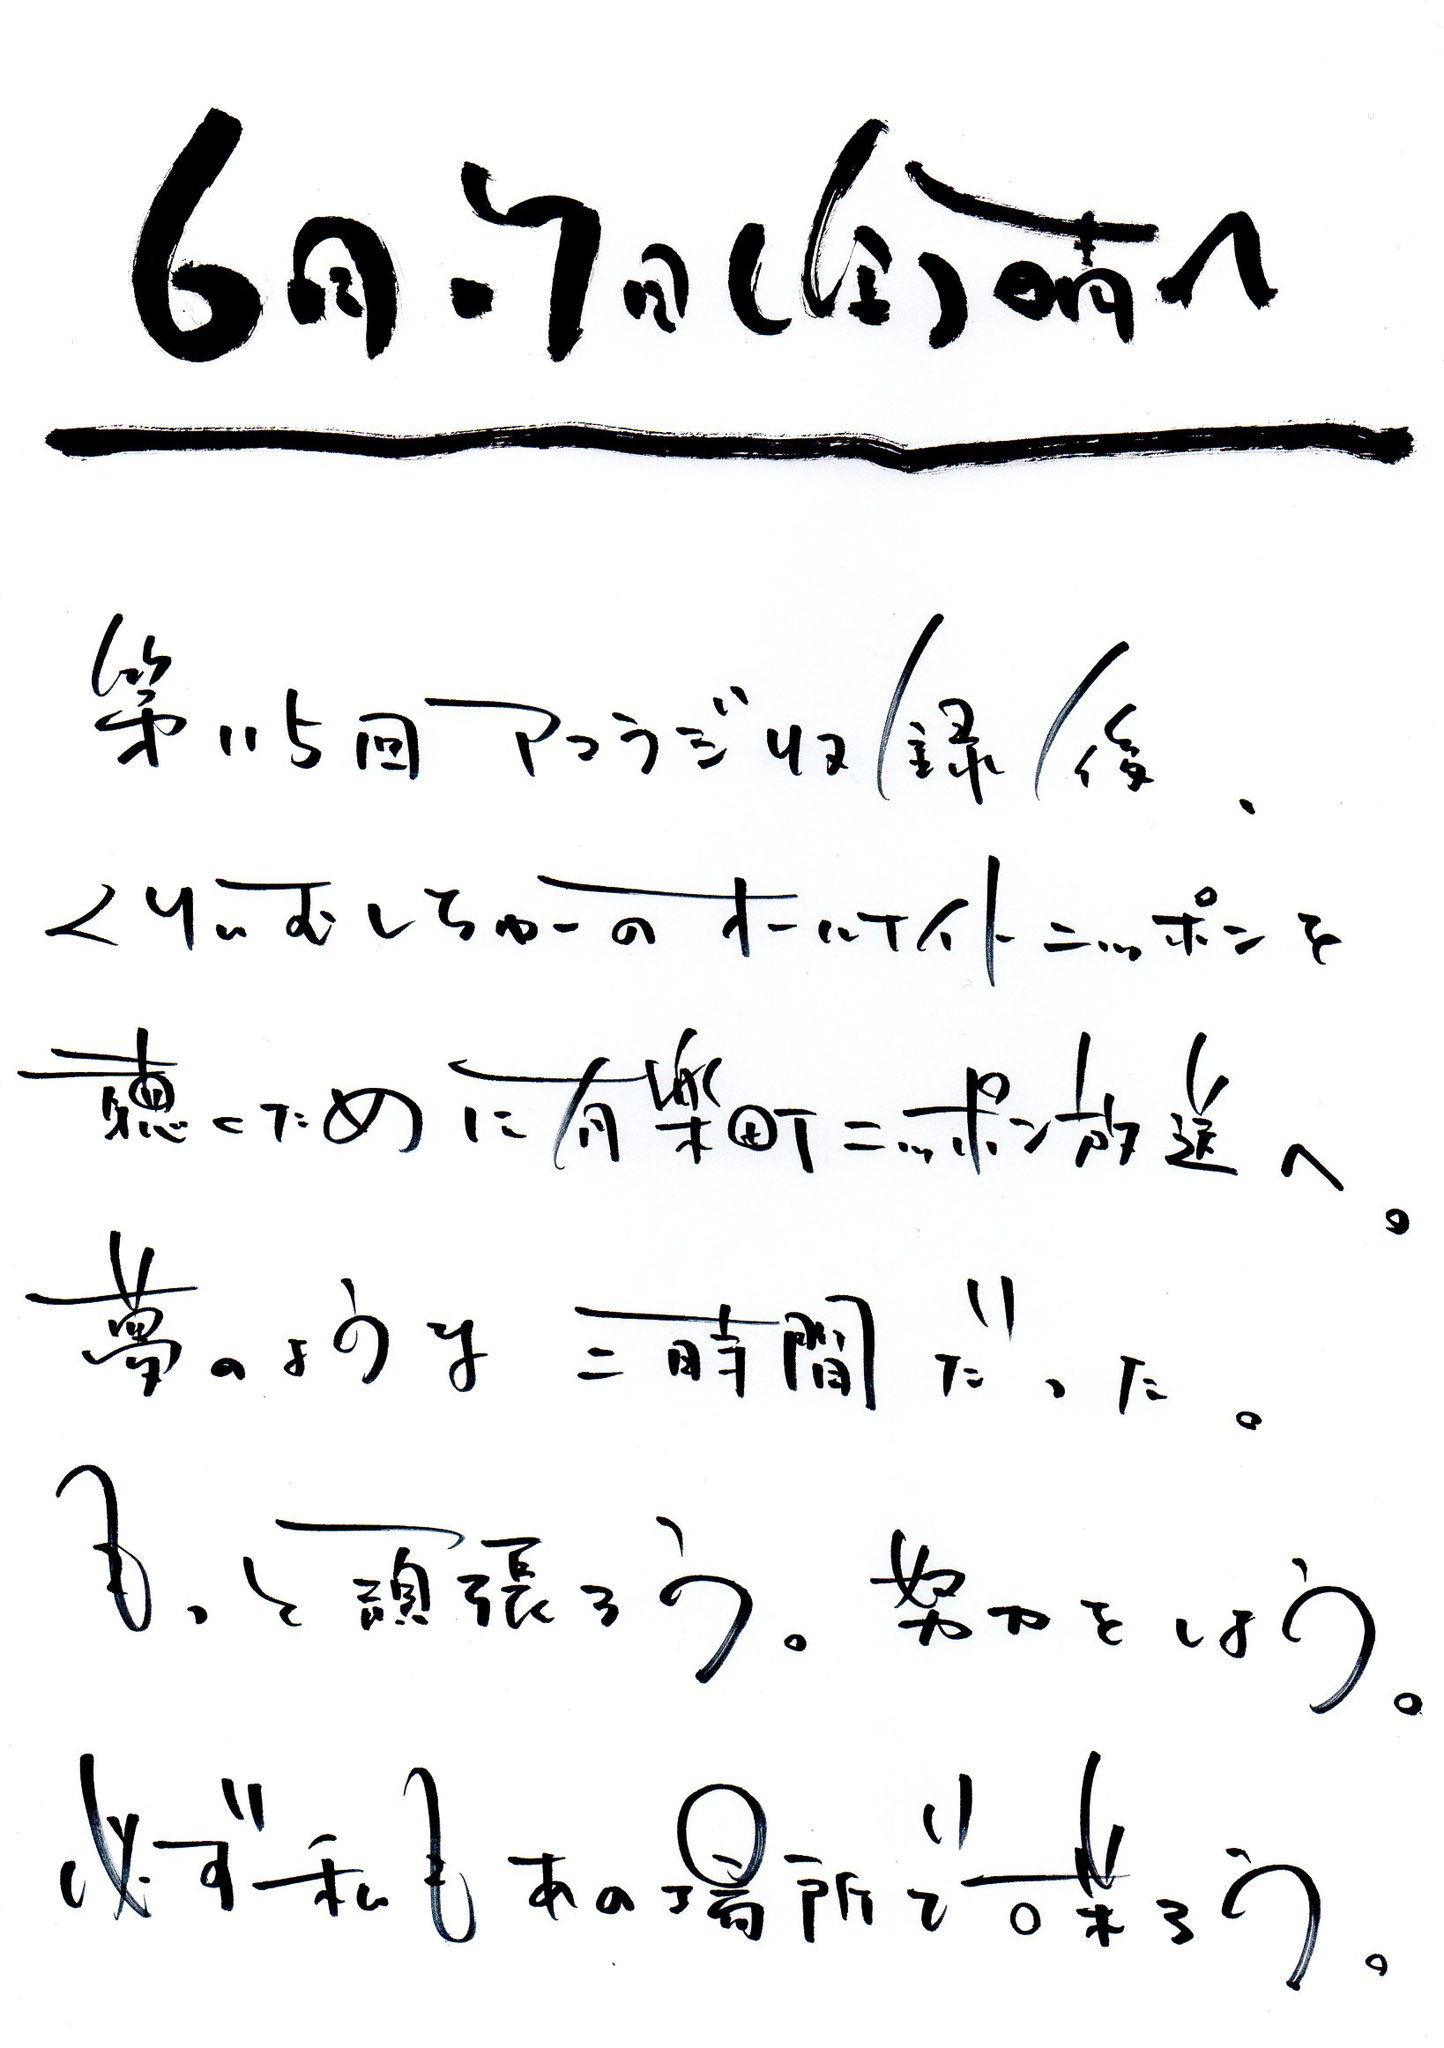 6月.7日(金)晴へ
第115回アコラジ収録後、
くりぃむしちゅーのオールナイトニッポンを
聴くために有楽町ニッポン放送へ。
夢のような二時間だった。
もっと頑張ろう。努力をしよう。
必ず私もあの場所で喋ろう。